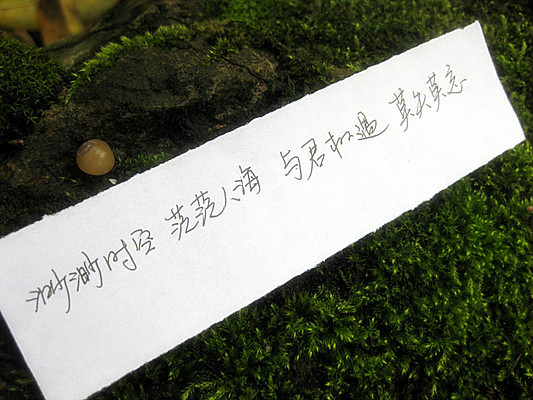 渺渺时空 茫茫人海 与君相遇 莫失莫忘